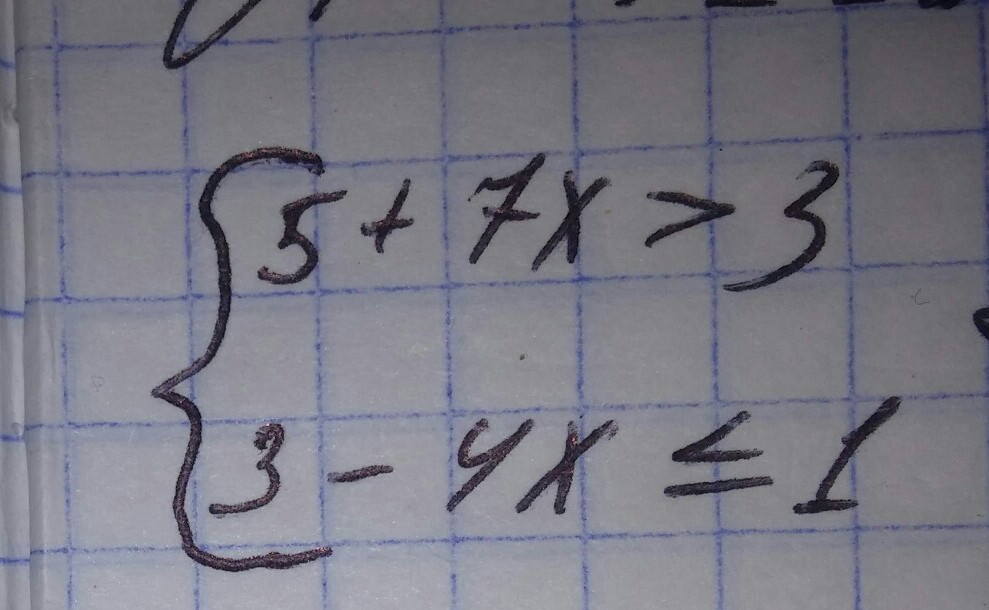 5 + 7x > 3
3 - 4x ≤ 1